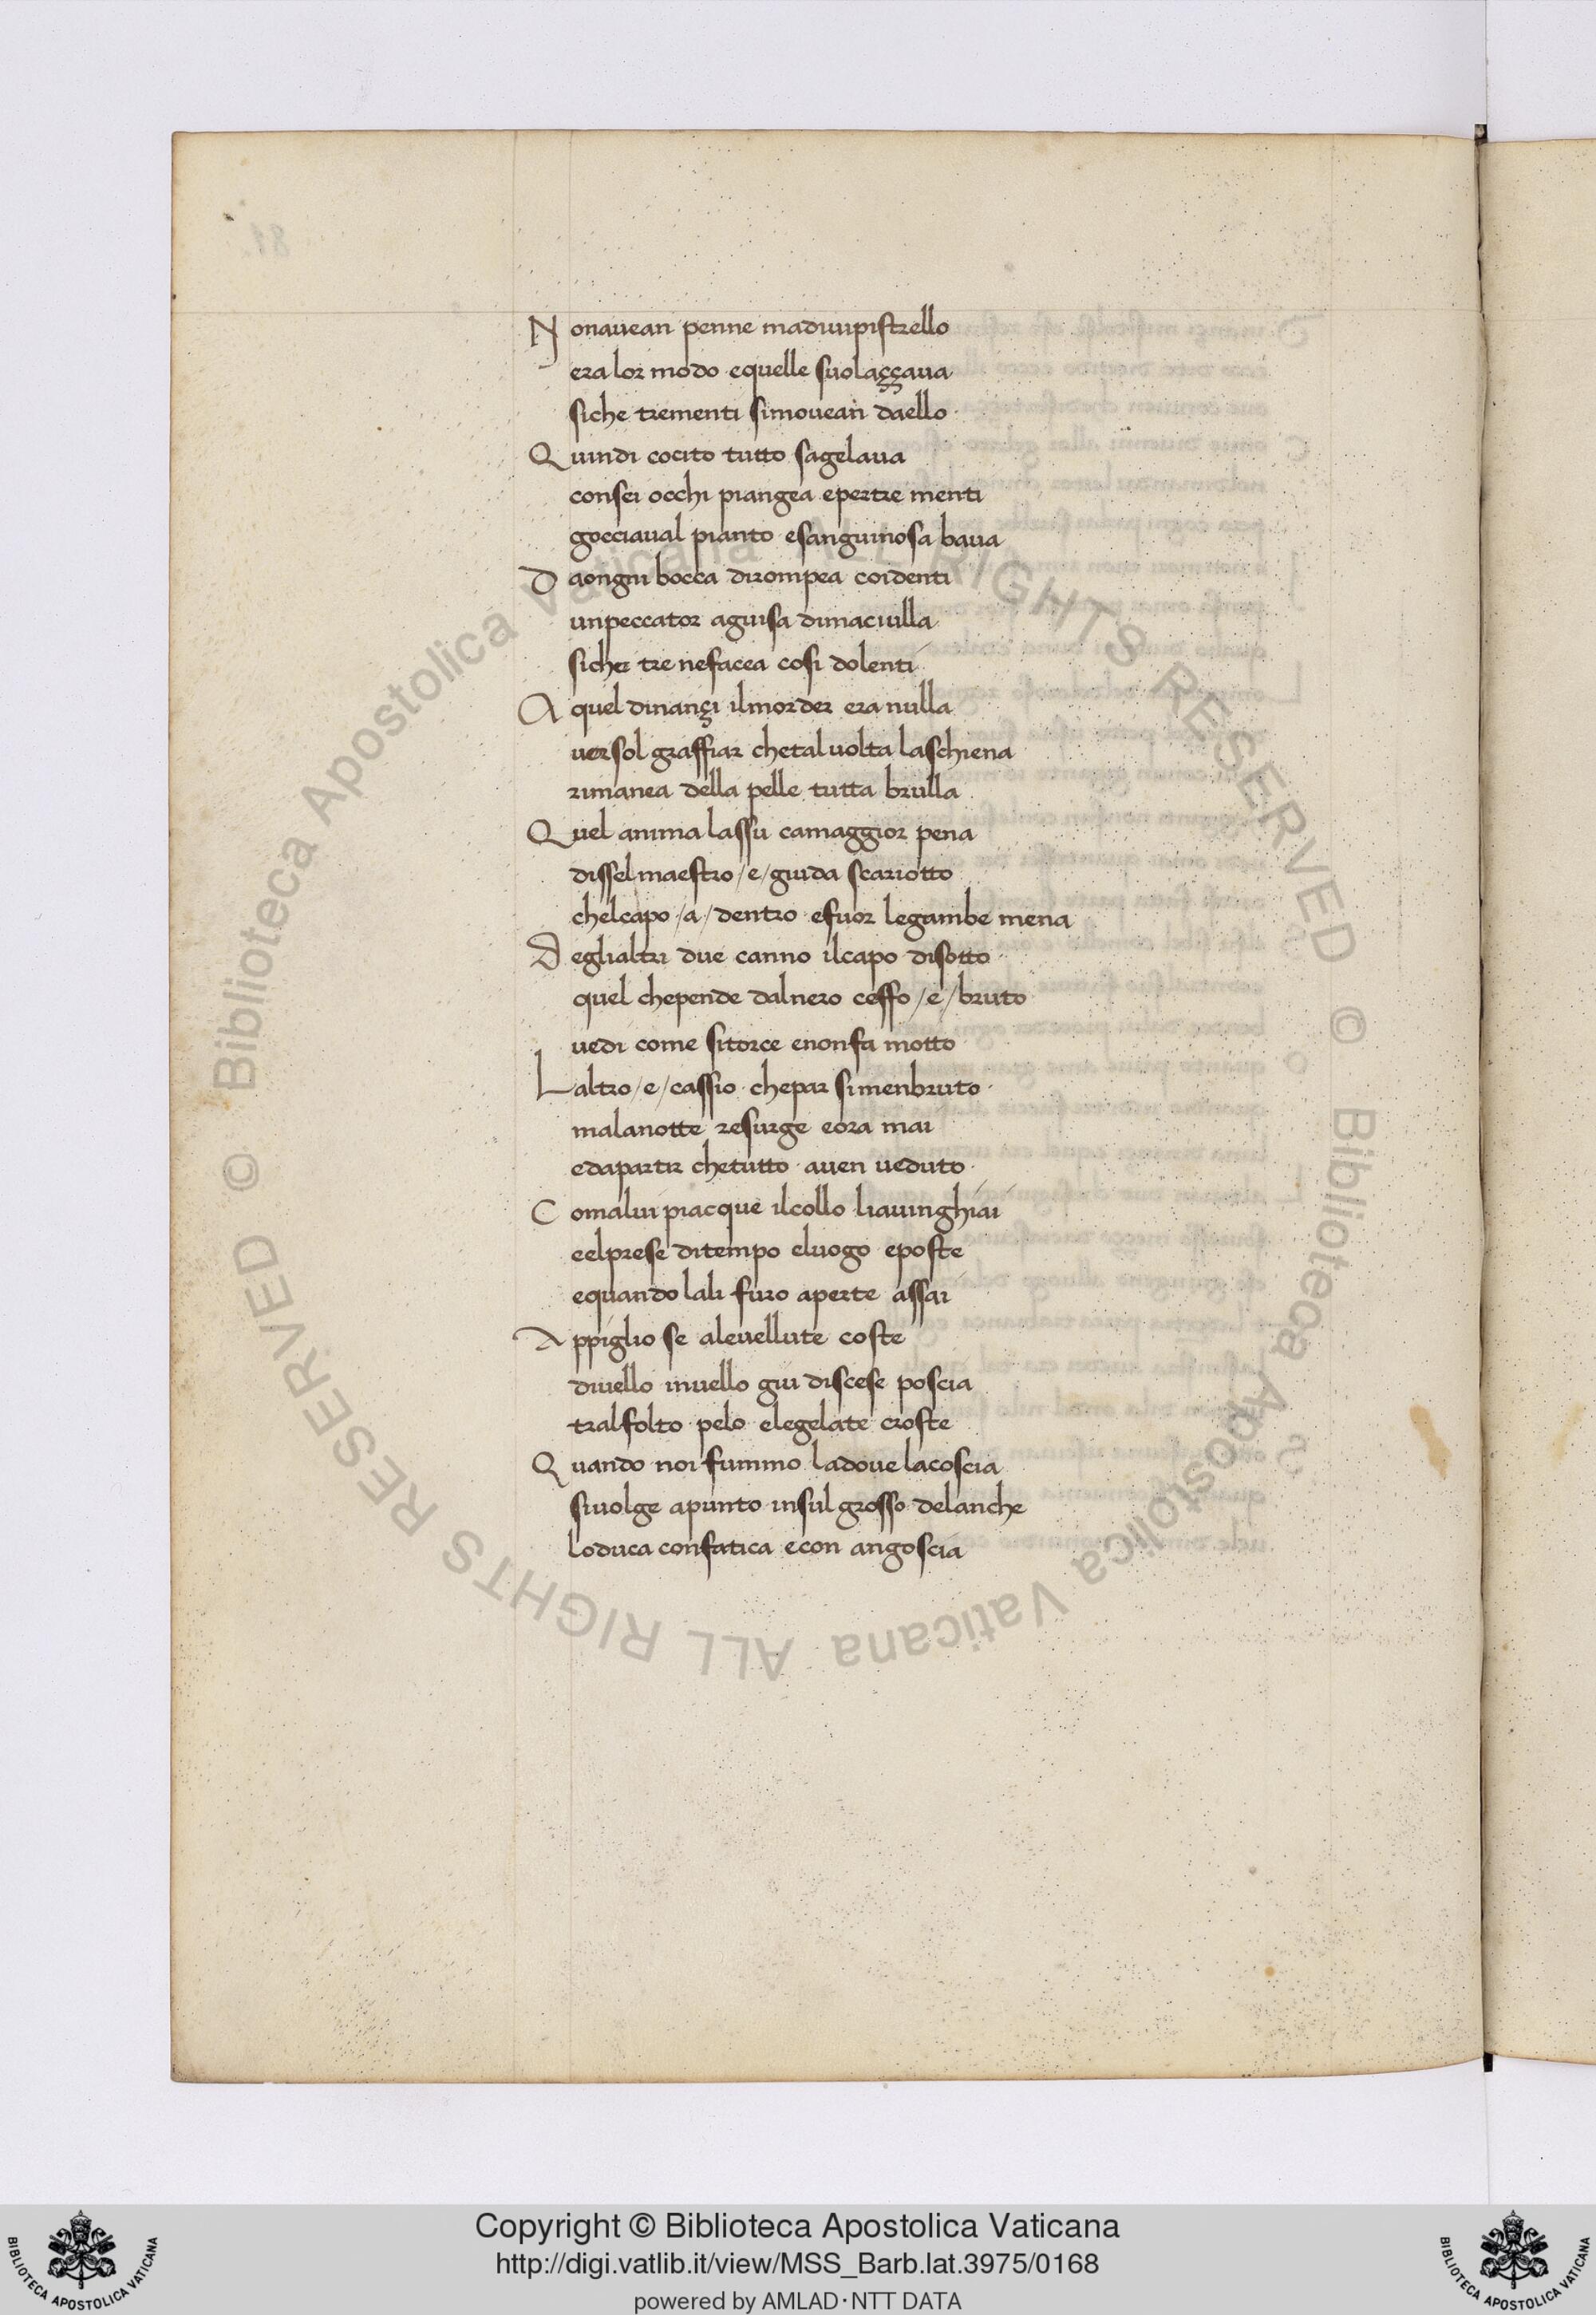 Nonauean penne madiuipistrello
era lor modo equelle suolaççaua
siche trementi simouean daello
Quindi cocito tutto sagelaua
consei occhi piangea epertre menti
gocciaual pianto esanguinosa baua
Daongni bocca dirompea coidenti
unpeccator aguisa dimaciulla
siche tre nefacea cosi dolenti
A quel dinançi ilmorder era nulla
uersol graffiar chetaluolta laschiena
rimanea della pelle tutta brulla
Quel anima lassu camaggior pena
disselmaestro /e/ guida scariotto
chelcapo /a/ dentro efuor legambe mena
Deglialtri due canno ilcapo disotto
quel chepende dalnero ceffo /e/ bruto
uedi come sitorce enonfa motto
Laltro /e/ cassio chepar simenbruto
malanotte resurge eora mai
edapartir chetutto auen ueduto
Comalui piacque ilcollo liauinghiai
eelprese ditempo eluogo eposte
equando lali furo aperte assai
Appiglio se aleuellute coste
diuello inuello giu discese poscia
tralfolto pelo elegelate croste
Quando noi fummo ladoue lacoscia
siuolge apunto insul grosso delanche
loduca confatica econ angoscia
Copyright © Biblioteca Apostolica Vaticana
http://digi.vatlib.it/view/MSS_Barb.lat.3975/0168
powered by AMLAD·NTT DATA
© Biblioteca Apostolica Vaticana ALL RIGHTS RESERVED © Biblioteca Apostolica Vaticana ALL RIGHTS RESERVED
BIBLIOTECA APOSTOLICA VATICANA
BIBLIOTECA APOSTOLICA VATICANA